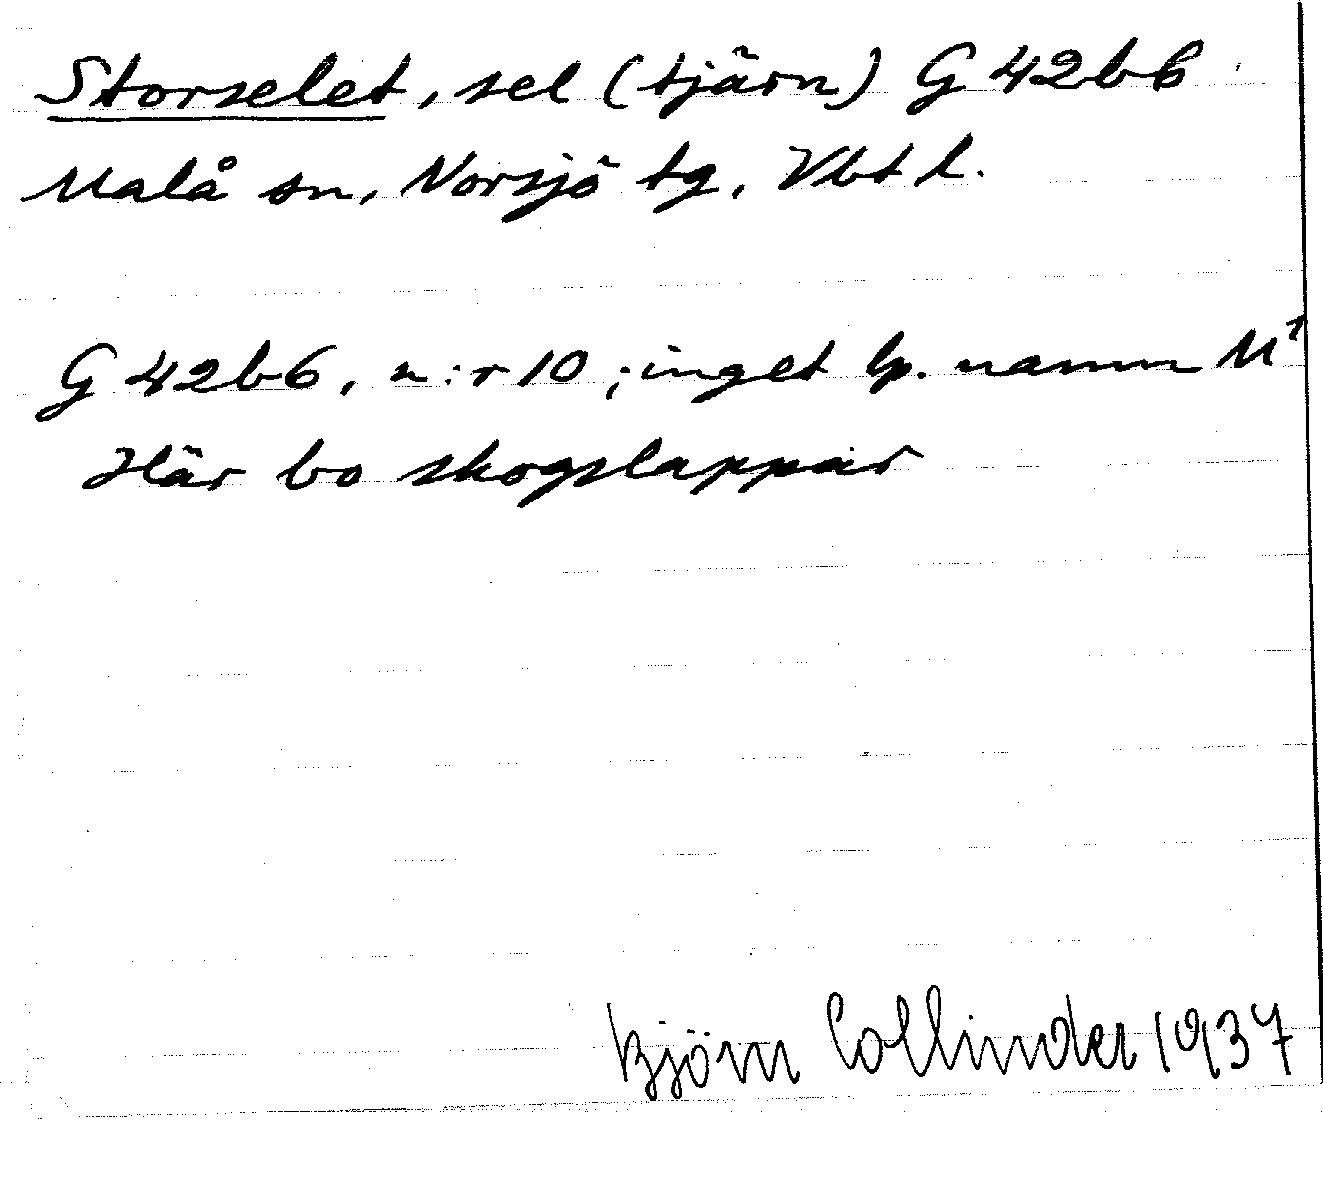 Storselet, sel (tjärn) G 42 b 6
Malå sn, Norsjö tg, Vbt l.
G 42 b 6, n:r 10; inget lp. namn M¹
Här bo skogslappar
Björn Collinder 1937